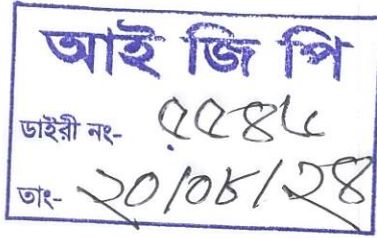 আই জি পি
ডাইরী নং- ৫৫৪৮
তাং- ২০/০৮/২৪